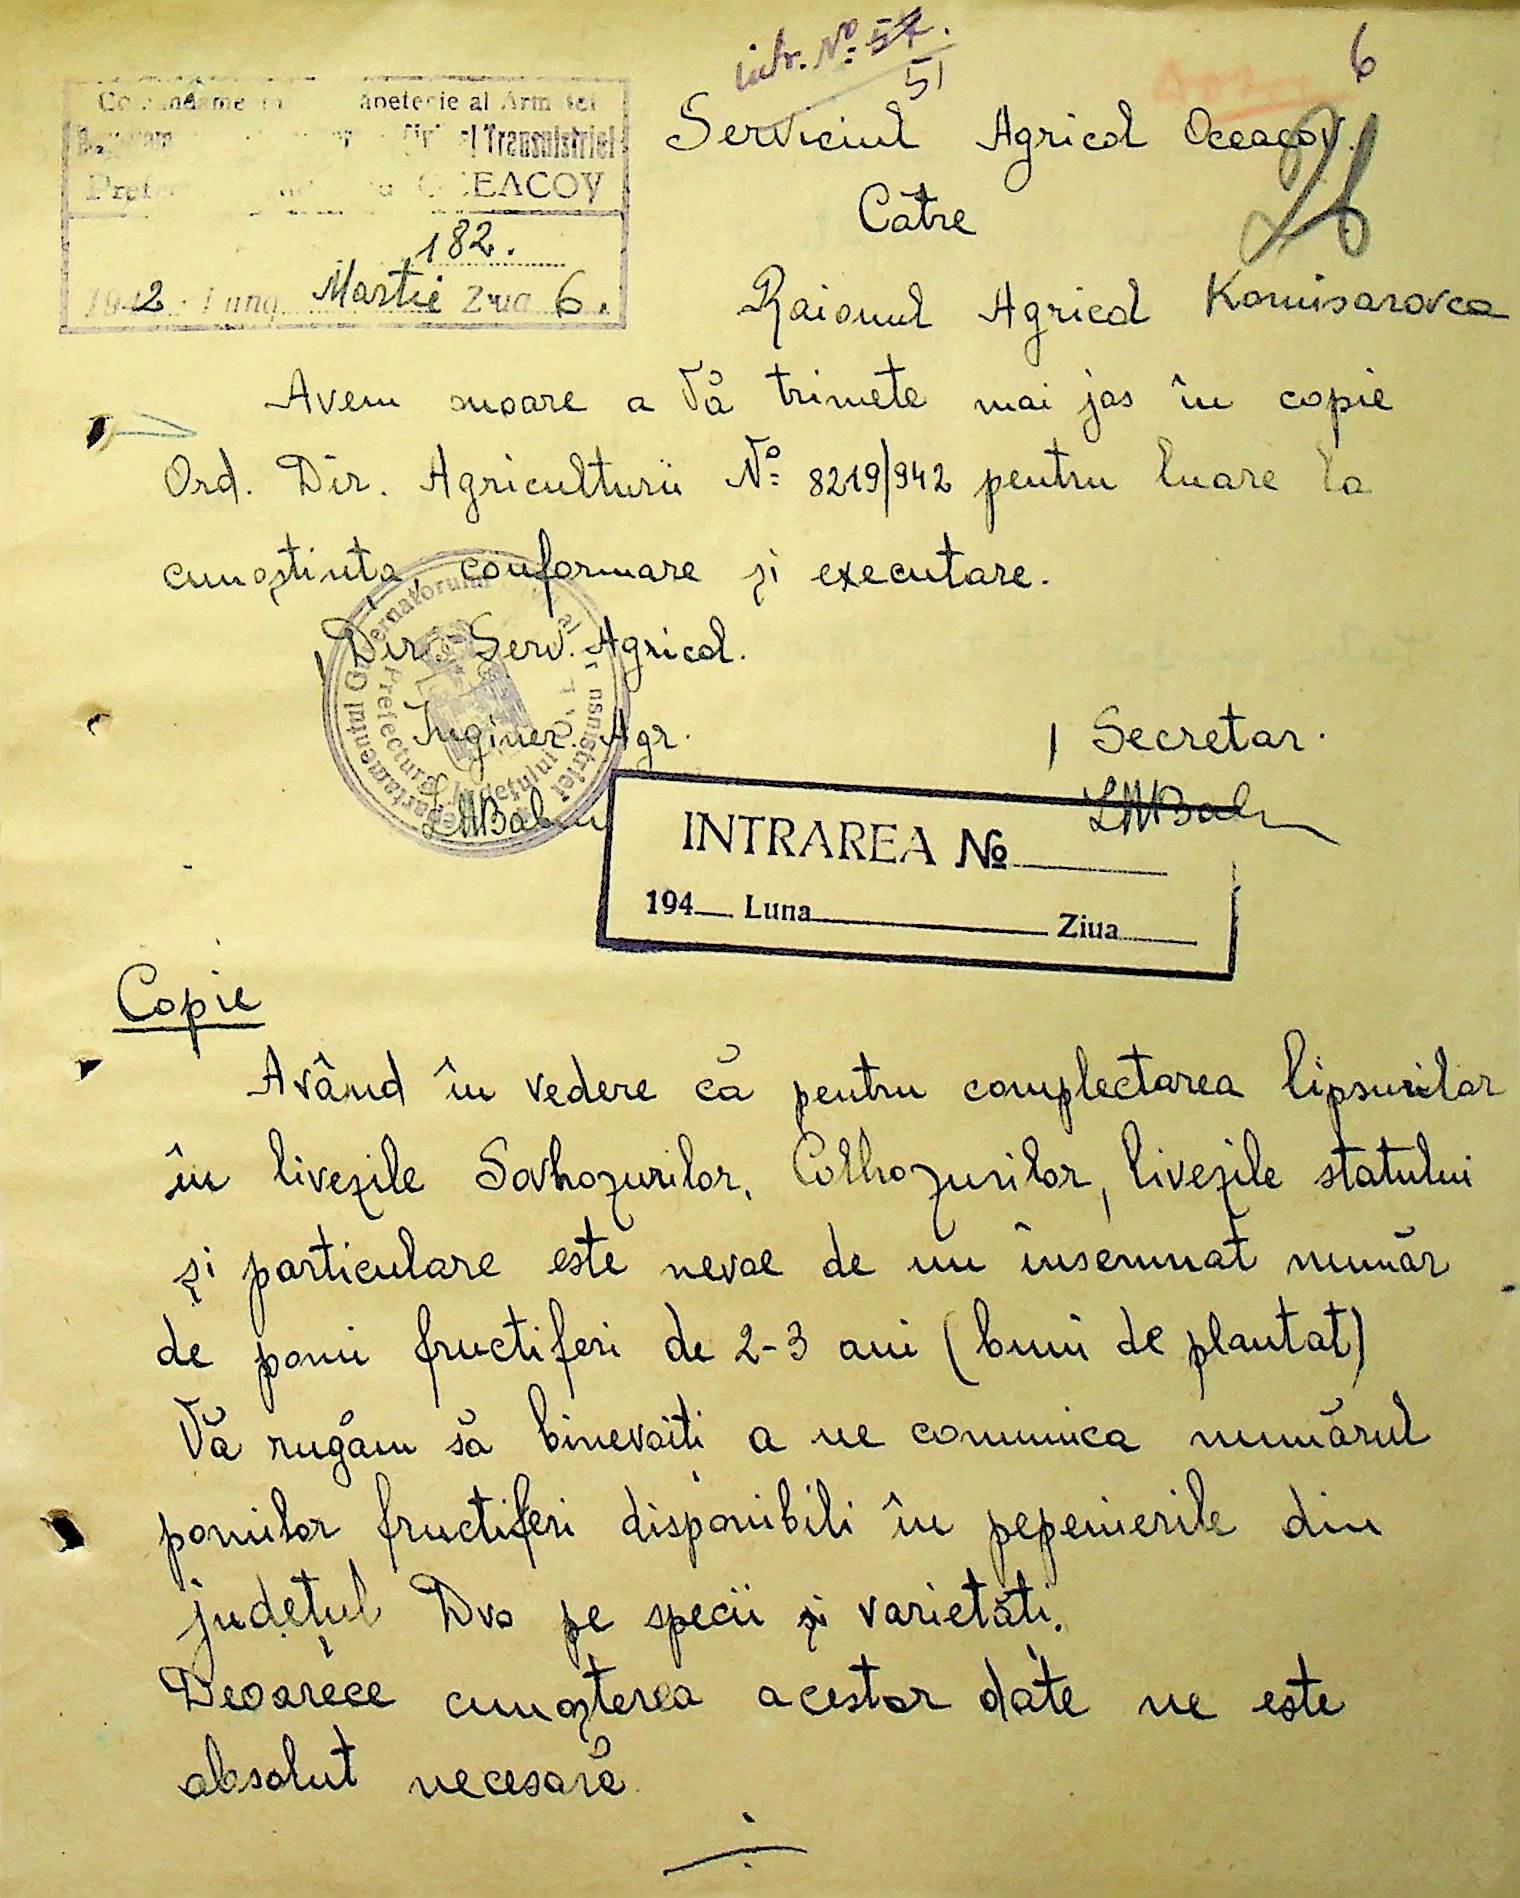 intr. № 57.
51
6
26
al Transnistriei
OCEACOV
182.
1942 Luna Martie Ziua 6.
Serviciul Agricol Oceacov.
Catre
Raionul Agricol Komisarovca
Avem onoare a Vă trimete mai jos în copie
Ord. Dir. Agriculturii № 8219/942 pentru luare la
cunoștința, conformare și executare.
Dir. Serv. Agricol.
Inginer. Agr.
/ Secretar.
Guvernatorului
Prefectura Județului
INTRAREA №
194 Luna Ziua
Copie
Având în vedere că pentru complectarea lipsurilor
în livezile Sovhozurilor, Colhozurilor, livezile statului
și particulare este nevoe de un însemnat număr
de pomi fructiferi de 2-3 ani (buni de plantat)
Vă rugăm să binevoiti a ne comunica numărul
pomilor fructiferi disponibili în pepenierile din
județul Dvo pe specii și varietăti.
Deoarece cunoșterea acestor date ne este
absolut necesară